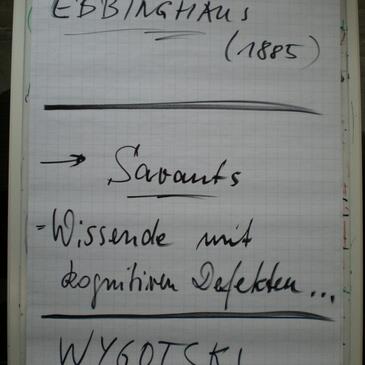 EBBINGHAUS
(1885)
→ Savants
= Wissende mit
kognitiven Defekten...
WYGOTSKI